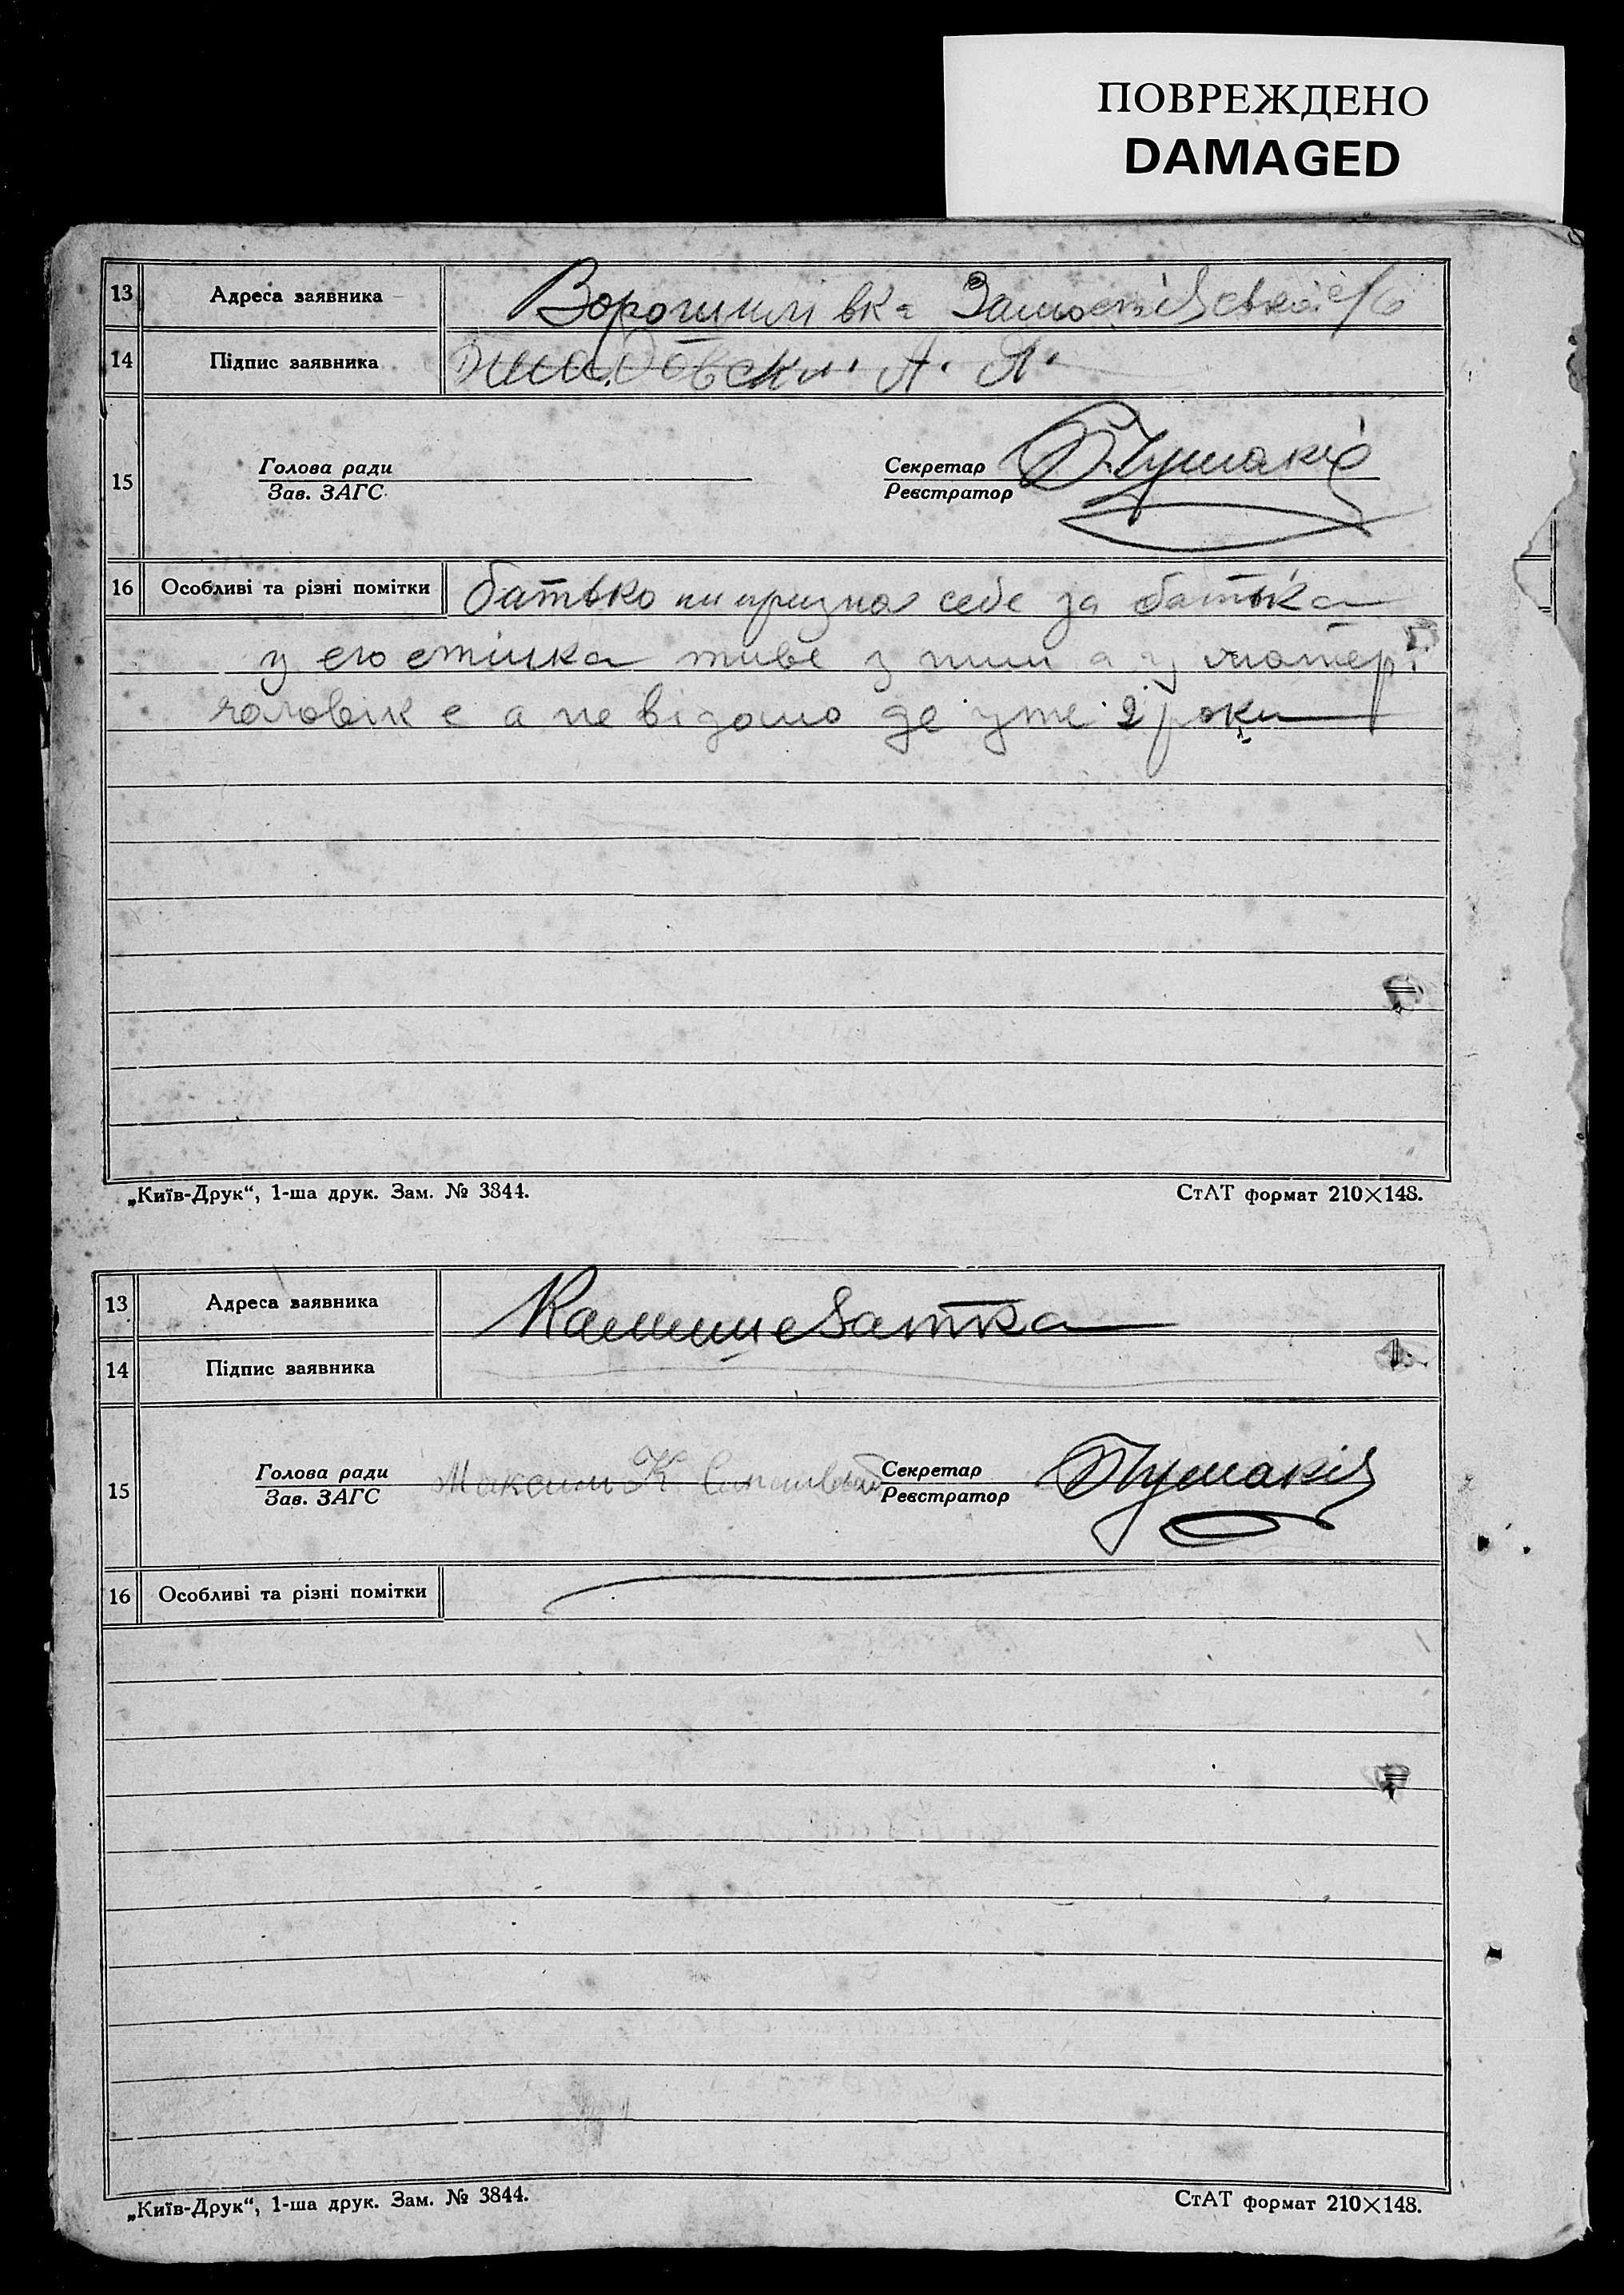 ПОВРЕЖДЕНО
DAMAGED
13 Адреса заявника Ворошилівка с/б
14 Підпис заявника А. Я.
Голова ради Секретар
15
Зав. ЗАГС. Реєстратор
16 Особливі та різні помітки батько ни признав себе за батька
у его жінка живе з ним а у матері
чоловік є а не відомо де уже 2 роки
„Київ-Друк“, 1-ша друк. Зам. № 3844. СтАТ формат 210×148.
13 Адреса заявника Камишеватка
14 Підпис заявника
Голова ради Максим К. Секретар
15
Зав. ЗАГС Реєстратор
16 Особливі та різні помітки
„Київ-Друк“, 1-ша друк. Зам. № 3844. СтАТ формат 210×148.